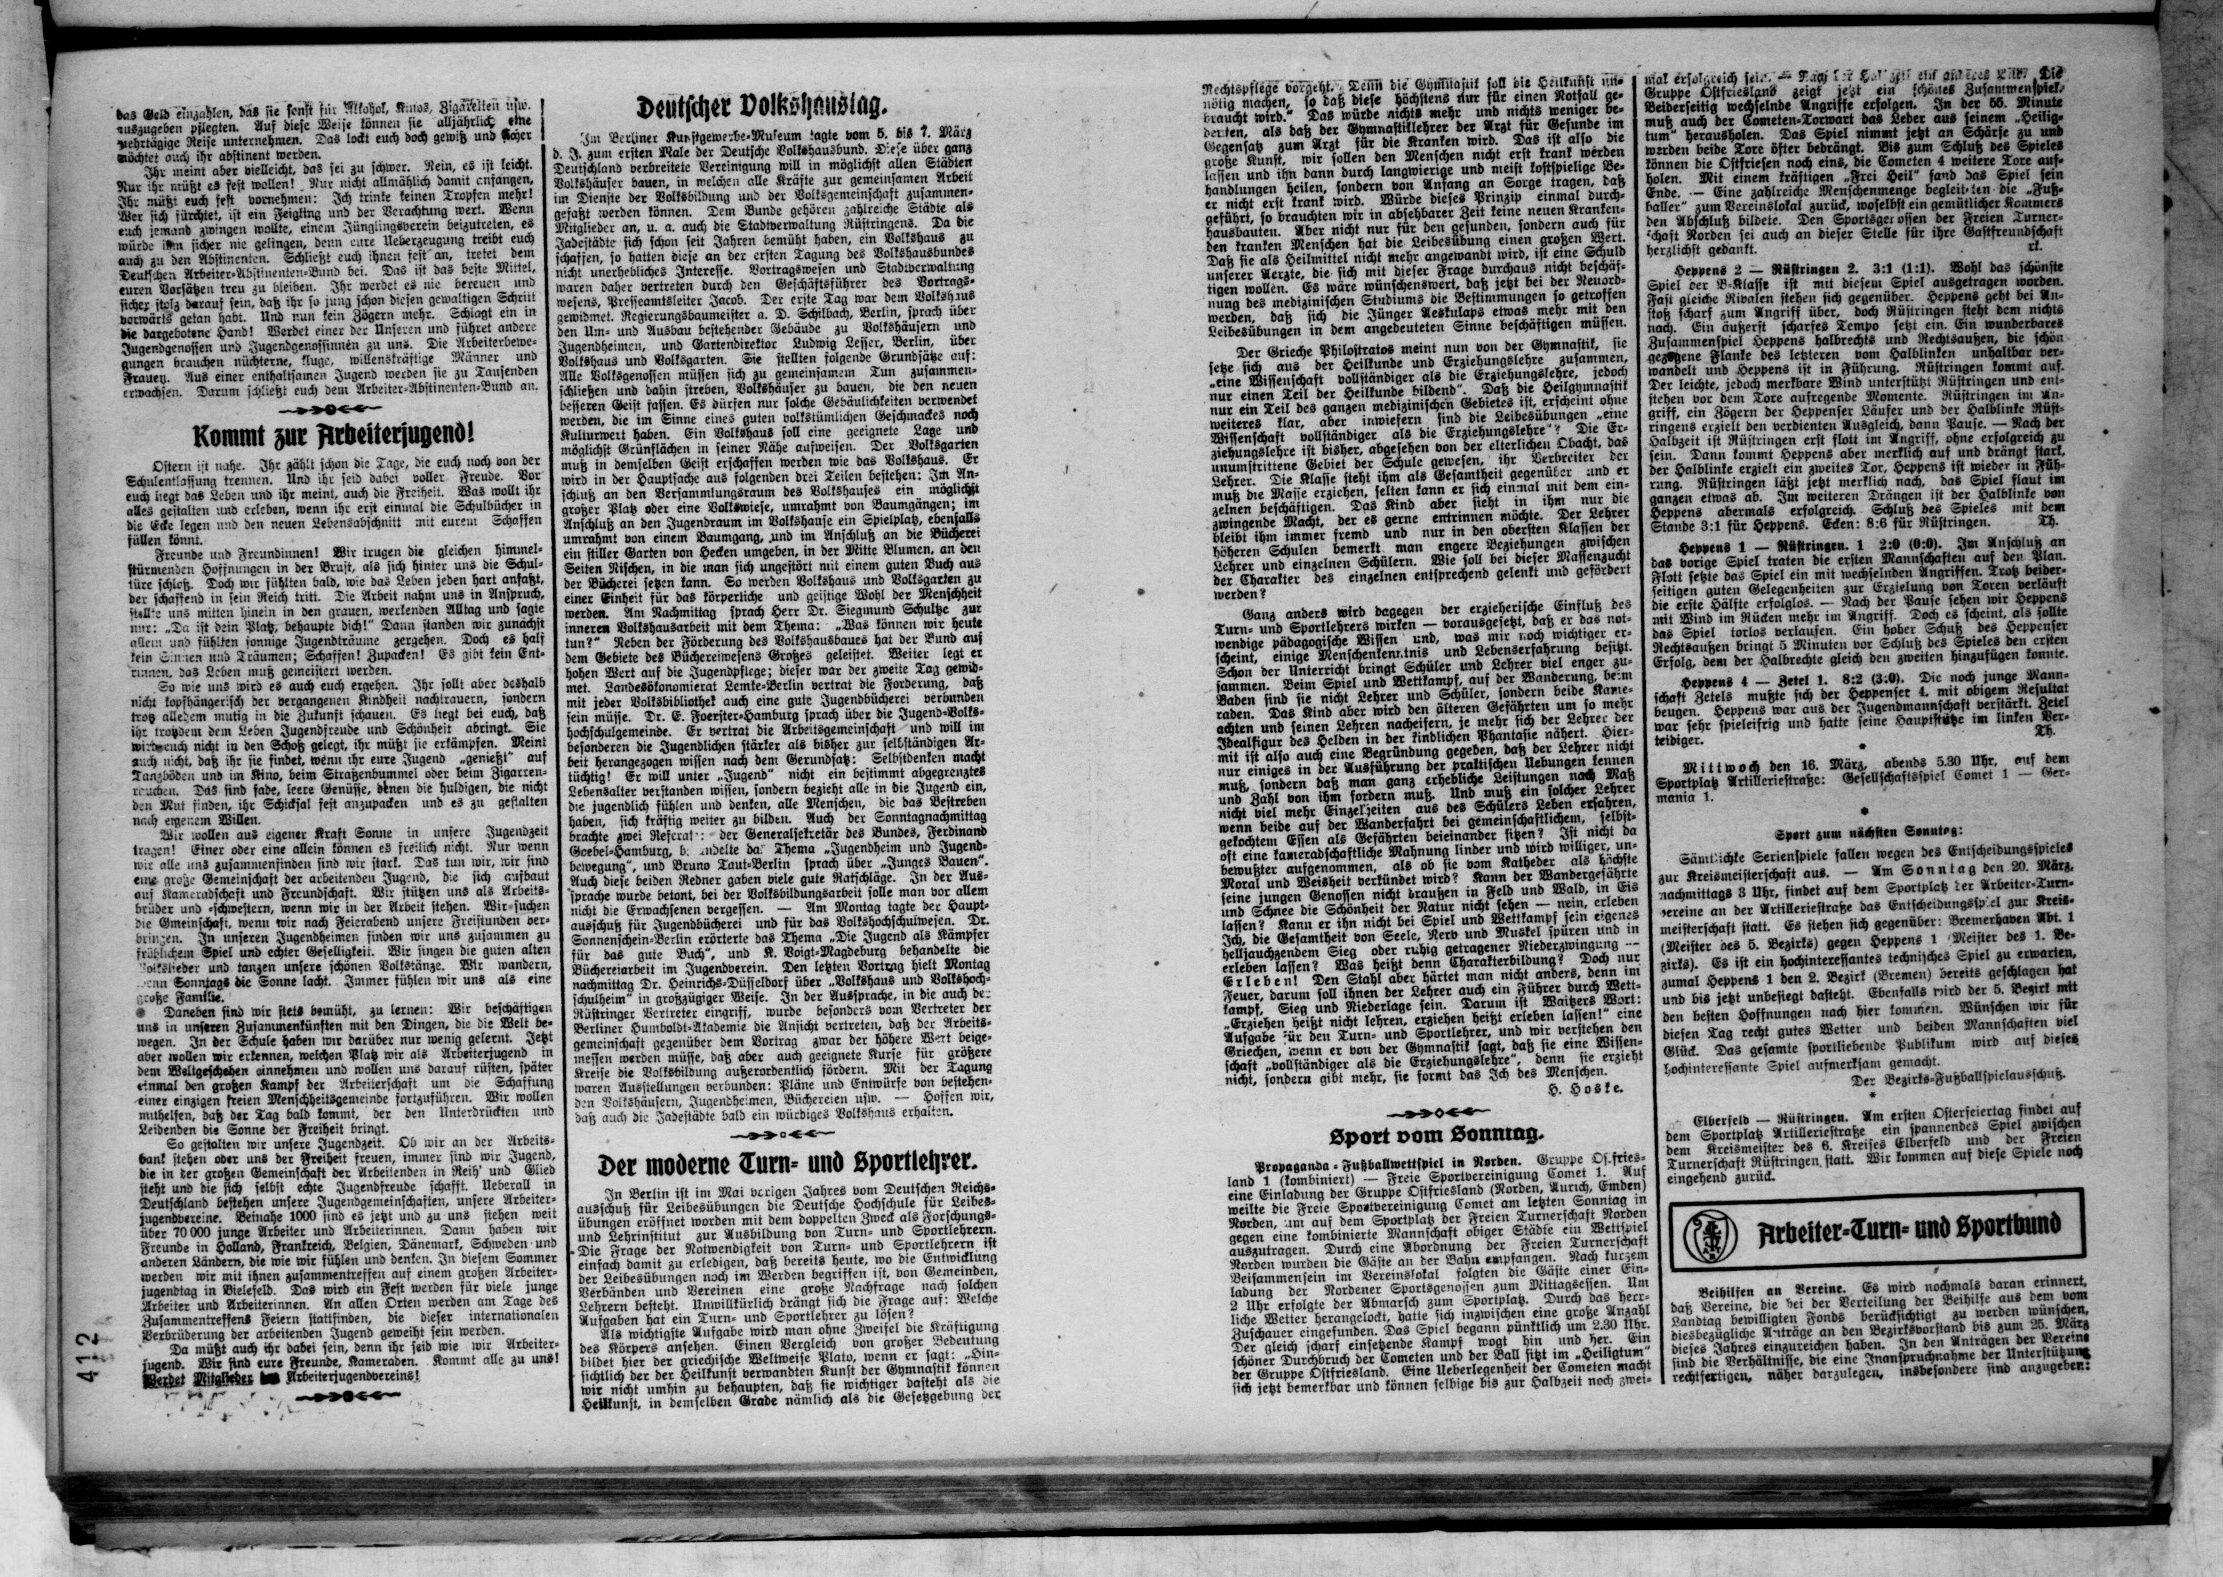 das Geld einzahlen, das sie sonst für Alkohol, Kinos, Zigaretten usw.
auszugeben pflegten. Auf diese Weise können sie alljährlich eine
mehrtägige Reise unternehmen. Das lockt euch doch gewiß und sicher
möchtet auch ihr abstinent werden.
Ihr meint aber vielleicht, das sei zu schwer. Nein, es ist leicht.
Nur ihr müßt es fest wollen! Nur nicht allmählich damit anfangen,
Ihr müßt euch fest vornehmen: Ich trinke keinen Tropfen mehr!
Wer sich fürchtet, ist ein Feigling und der Verachtung wert. Wenn
euch jemand zwingen wollte, einem Jünglingsverein beizutreten, es
würde ihm sicher nie gelingen, denn eure Ueberzeugung treibt euch
auch zu den Abstinenten. Schließt euch ihnen fest an, tretet dem
Deutschen Arbeiter-Abstinenten-Bund bei. Das ist das beste Mittel,
euren Vorsätzen treu zu bleiben. Ihr werdet es nie bereuen und
sicher stolz darauf sein, daß ihr so jung schon diesen gewaltigen Schritt
vorwärts getan habt. Und nun kein Zögern mehr. Schlagt ein in
die dargebotene Hand! Werdet einer der Unseren und führet andere
Jugendgenossen und Jugendgenossinnen zu uns. Die Arbeiterbewe-
gungen brauchen nüchterne, kluge, willenskräftige Männer und
Frauen. Aus einer enthaltsamen Jugend werden sie zu Tausenden
erwachsen. Darum schließt euch dem Arbeiter-Abstinenten-Bund an.
Kommt zur Arbeiterjugend!
Ostern ist nahe. Ihr zählt schon die Tage, die euch noch von der
Schulentlassung trennen. Und ihr seid dabei voller Freude. Vor
euch liegt das Leben und ihr meint, auch die Freiheit. Was wollt ihr
alles gestalten und erleben, wenn ihr erst einmal die Schulbücher in
die Ecke legen und den neuen Lebensabschnitt mit eurem Schaffen
füllen könnt.
Freunde und Freundinnen! Wir trugen die gleichen himmel-
stürmenden Hoffnungen in der Brust, als sich hinter uns die Schul-
türe schloß. Doch wir fühlten bald, wie das Leben jeden hart anfaßt,
der schaffend in sein Reich tritt. Die Arbeit nahm uns in Anspruch,
stellte uns mitten hinein in den grauen, werkenden Alltag und sagte
nur: „Da ist dein Platz, behaupte dich!“ Dann standen wir zunächst
allein und fühlten sonnige Jugendträume zergehen. Doch es half
kein Sinnen und Träumen; Schaffen! Zupacken! Es gibt kein Ent-
rinnen, das Leben muß gemeistert werden.
So wie uns wird es auch euch ergehen. Ihr sollt aber deshalb
nicht kopfhängerisch der vergangenen Kindheit nachtrauern, sondern
trotz alledem mutig in die Zukunft schauen. Es liegt bei euch, daß
ihr trotzdem dem Leben Jugendfreude und Schönheit abringt. Sie
wird euch nicht in den Schoß gelegt, ihr müßt sie erkämpfen. Meint
auch nicht, daß ihr sie findet, wenn ihr eure Jugend „genießt“ auf
Tanzböden und im Kino, beim Straßenbummel oder beim Zigarren-
rauchen. Das sind fade, leere Genüsse, denen die huldigen, die nicht
den Mut finden, ihr Schicksal fest anzupacken und es zu gestalten
nach eigenem Willen.
Wir wollen aus eigener Kraft Sonne in unsere Jugendzeit
tragen! Einer oder eine allein können es freilich nicht. Nur wenn
wir alle uns zusammenfinden sind wir stark. Das tun wir, wir sind
eine große Gemeinschaft der arbeitenden Jugend, die sich aufbaut
auf Kameradschaft und Freundschaft. Wir stützen uns als Arbeits-
brüder und -schwestern, wenn wir in der Arbeit stehen. Wir suchen
die Gmeinschaft, wenn wir nach Feierabend unsere Freistunden ver-
bringen. In unseren Jugendheimen finden wir uns zusammen zu
fröhlichem Spiel und echter Geselligkeit. Wir singen die guten alten
Volkslieder und tanzen unsere schönen Volkstänze. Wir wandern,
wenn Sonntags die Sonne lacht. Immer fühlen wir uns als eine
große Familie.
Daneben sind wir stets bemüht, zu lernen: Wir beschäftigen
uns in unseren Zusammenkünften mit den Dingen, die die Welt be-
wegen. In der Schule haben wir darüber nur wenig gelernt. Jetzt
aber wollen wir erkennen, welchen Platz wir als Arbeiterjugend in
dem Weltgeschehen einnehmen und wollen uns darauf rüsten, später
einmal den großen Kampf der Arbeiterschaft um die Schaffung
einer einzigen freien Menschheitsgemeinde fortzuführen. Wir wollen
mithelfen, daß der Tag bald kommt, der den Unterdrückten und
Leidenden die Sonne der Freiheit bringt.
So gestalten wir unsere Jugendzeit. Ob wir an der Arbeits-
bank stehen oder uns der Freiheit freuen, immer sind wir Jugend,
die in der großen Gemeinschaft der Arbeitenden in Reih' und Glied
steht und die sich selbst echte Jugendfreude schafft. Ueberall in
Deutschland bestehen unsere Jugendgemeinschaften, unsere Arbeiter-
jugendvereine. Beinahe 1000 sind es jetzt und zu uns stehen weit
über 70 000 junge Arbeiter und Arbeiterinnen. Dann haben wir
Freunde in Holland, Frankreich, Belgien, Dänemark, Schweden und
anderen Ländern, die wie wir fühlen und denken. In diesem Sommer
werden wir mit ihnen zusammentreffen auf einem großen Arbeiter-
jugendtag in Bielefeld. Das wird ein Fest werden für viele junge
Arbeiter und Arbeiterinnen. An allen Orten werden am Tage des
Zusammentreffens Feiern stattfinden, die dieser internationalen
Verbrüderung der arbeitenden Jugend geweiht sein werden.
Da müßt auch ihr dabei sein, denn ihr seid wie wir Arbeiter-
jugend. Wir sind eure Freunde, Kameraden. Kommt alle zu uns!
Werdet Mitglieder des Arbeiterjugendvereins!
412
Deutscher Volkshaustag.
Im Berliner Kunstgewerbe-Museum tagte vom 5. bis 7. März
d. J. zum ersten Male der Deutsche Volkshausbund. Diese über ganz
Deutschland verbreitete Vereinigung will in möglichst allen Städten
Volkshäuser bauen, in welchen alle Kräfte zur gemeinsamen Arbeit
im Dienste der Volksbildung und der Volksgemeinschaft zusammen-
gefaßt werden können. Dem Bunde gehören zahlreiche Städte als
Mitglieder an, u. a. auch die Stadtverwaltung Rüstringens. Da die
Jadestädte sich schon seit Jahren bemüht haben, ein Volkshaus zu
schaffen, so hatten diese an der ersten Tagung des Volkshausbundes
nicht unerhebliches Interesse. Vortragswesen und Stadtverwaltung
waren daher vertreten durch den Geschäftsführer des Vortrags-
wesens, Presseamtsleiter Jacob. Der erste Tag war dem Volkshaus
gewidmet. Regierungsbaumeister a. D. Schilbach, Berlin, sprach über
den Um- und Ausbau bestehender Gebäude zu Volkshäusern und
Jugendheimen, und Gartendirektor Ludwig Lesser, Berlin, über
Volkshaus und Volksgarten. Sie stellten folgende Grundsätze auf:
Alle Volksgenossen müssen sich zu gemeinsamem Tun zusammen-
schließen und dahin streben, Volkshäuser zu bauen, die den neuen
besseren Geist fassen. Es dürfen nur solche Gebäulichkeiten verwendet
werden, die im Sinne eines guten volkstümlichen Geschmackes noch
Kulturwert haben. Ein Volkshaus soll eine geeignete Lage und
möglichst Grünflächen in seiner Nähe aufweisen. Der Volksgarten
muß in demselben Geist erschaffen werden wie das Volkshaus. Er
wird in der Hauptsache aus folgenden drei Teilen bestehen: Im An-
schluß an den Versammlungsraum des Volkshauses ein möglichst
großer Platz oder eine Volkswiese, umrahmt von Baumgängen; im
Anschluß an den Jugendraum im Volkshause ein Spielplatz, ebenfalls
umrahmt von einem Baumgang, und im Anschluß an die Bücherei
ein stiller Garten von Hecken umgeben, in der Mitte Blumen, an den
Seiten Nischen, in die man sich ungestört mit einem guten Buch aus
der Bücherei setzen kann. So werden Volkshaus und Volksgarten zu
einer Einheit für das körperliche und geistige Wohl der Menschheit
werden. Am Nachmittag sprach Herr Dr. Siegmund Schultze zur
inneren Volkshausarbeit mit dem Thema: „Was können wir heute
tun?“ Neben der Förderung des Volkshausbaues hat der Bund auf
dem Gebiete des Büchereiwesens Großes geleistet. Weiter legt er
hohen Wert auf die Jugendpflege; dieser war der zweite Tag gewid-
met. Landesökonomierat Lemke-Berlin vertrat die Forderung, daß
mit jeder Volksbibliothek auch eine gute Jugendbücherei verbunden
sein müsse. Dr. E. Foerster-Hamburg sprach über die Jugend-Volks-
hochschulgemeinde. Er vertrat die Arbeitsgemeinschaft und will im
besonderen die Jugendlichen stärker als bisher zur selbständigen Ar-
beit herangezogen wissen nach dem Gerundsatz: Selbstdenken macht
tüchtig! Er will unter „Jugend“ nicht ein bestimmt abgegrenztes
Lebensalter verstanden wissen, sondern bezieht alle in die Jugend ein,
die jugendlich fühlen und denken, alle Menschen, die das Bestreben
haben, sich kräftig weiter zu bilden. Auch der Sonntagnachmittag
brachte zwei Referate: der Generalsekretär des Bundes, Ferdinand
Goebel-Hamburg, behandelte das Thema „Jugendheim und Jugend-
bewegung“, und Bruno Taut-Berlin sprach über „Junges Bauen“.
Auch diese beiden Redner gaben viele gute Ratschläge. In der Aus-
sprache wurde betont, bei der Volksbildungsarbeit solle man vor allem
nicht die Erwachsenen vergessen. — Am Montag tagte der Haupt-
ausschuß für Jugendbücherei und für das Volkshochschulwesen. Dr.
Sonnenschein-Berlin erörterte das Thema „Die Jugend als Kämpfer
für das gute Buch“, und K. Voigt-Magdeburg behandelte die
Büchereiarbeit im Jugendverein. Den letzten Vortrag hielt Montag
nachmittag Dr. Heinrichs-Düsseldorf über „Volkshaus und Volkshoch-
schulheim“ in großzügiger Weise. In der Aussprache, in die auch der
Rüstringer Vertreter eingriff, wurde besonders vom Vertreter der
Berliner Humboldt-Akademie die Ansicht vertreten, daß der Arbeits-
gemeinschaft gegenüber dem Vortrag zwar der höhere Wert beige-
messen werden müsse, daß aber auch geeignete Kurse für größere
Kreise die Volksbildung außerordentlich fördern. Mit der Tagung
waren Ausstellungen verbunden: Pläne und Entwürfe von bestehen-
den Volkshäusern, Jugendheimen, Büchereien usw. — Hoffen wir,
daß auch die Jadestädte bald ein würdiges Volkshaus erhalten.
Der moderne Turn- und Sportlehrer.
In Berlin ist im Mai vorigen Jahres vom Deutschen Reichs-
ausschuß für Leibesübungen die Deutsche Hochschule für Leibes-
übungen eröffnet worden mit dem doppelten Zweck als Forschungs-
und Lehrinstitut zur Ausbildung von Turn- und Sportlehrern.
Die Frage der Notwendigkeit von Turn- und Sportlehrern ist
einfach damit zu erledigen, daß bereits heute, wo die Entwicklung
der Leibesübungen noch im Werden begriffen ist, von Gemeinden,
Verbänden und Vereinen eine große Nachfrage nach solchen
Lehrern besteht. Unwillkürlich drängt sich die Frage auf: Welche
Aufgaben hat ein Turn- und Sportlehrer zu lösen?
Als wichtigste Aufgabe wird man ohne Zweifel die Kräftigung
des Körpers ansehen. Einen Vergleich von großer Bedeutung
bildet hier der griechische Weltweise Plato, wenn er sagt: „Hin-
sichtlich der der Heilkunst verwandten Kunst der Gymnastik können
wir nicht umhin zu behaupten, daß sie wichtiger dasteht als die
Heilkunst, in demselben Grade nämlich als die Gesetzgebung der
Rechtspflege vorgeht. Denn die Gymnastik soll die Heilkunst un-
nötig machen, so daß diese höchstens nur für einen Notfall ge-
braucht wird.“ Das würde nichts mehr und nichts weniger be-
deuten, als daß der Gymnastiklehrer der Arzt für Gesunde im
Gegensatz zum Arzt für die Kranken wird. Das ist also die
große Kunst, wir sollen den Menschen nicht erst krank werden
lassen und ihn dann durch langwierige und meist kostspielige Be-
handlungen heilen, sondern von Anfang an Sorge tragen, daß
er nicht erst krank wird. Würde dieses Prinzip einmal durch-
geführt, so brauchten wir in absehbarer Zeit keine neuen Kranken-
hausbauten. Aber nicht nur für den gesunden, sondern auch für
den kranken Menschen hat die Leibesübung einen großen Wert.
Daß sie als Heilmittel nicht mehr angewandt wird, ist eine Schuld
unserer Aerzte, die sich mit dieser Frage durchaus nicht beschäf-
tigen wollen. Es wäre wünschenswert, daß jetzt bei der Neuord-
nung des medizinischen Studiums die Bestimmungen so getroffen
werden, daß sich die Jünger Aeskulaps etwas mehr mit den
Leibesübungen in dem angedeuteten Sinne beschäftigen müssen.
Der Grieche Philostratos meint nun von der Gymnastik, sie
setze sich aus der Heilkunde und Erziehungslehre zusammen,
„eine Wissenschaft vollständiger als die Erziehungslehre, jedoch
nur einen Teil der Heilkunde bildend“. Daß die Heilgymnastik
nur ein Teil des ganzen medizinischen Gebietes ist, erscheint ohne
weiteres klar, aber inwiefern sind die Leibesübungen „eine
Wissenschaft vollständiger als die Erziehungslehre“? Die Er-
ziehungslehre ist bisher, abgesehen von der elterlichen Obacht, das
unumstrittene Gebiet der Schule gewesen, ihr Verbreiter der
Lehrer. Die Klasse steht ihm als Gesamtheit gegenüber und er
muß die Masse erziehen, selten kann er sich einmal mit dem ein-
zelnen beschäftigen. Das Kind aber sieht in ihm nur die
zwingende Macht, der es gerne entrinnen möchte. Der Lehrer
bleibt ihm immer fremd und nur in den obersten Klassen der
höheren Schulen bemerkt man engere Beziehungen zwischen
Lehrer und einzelnen Schülern. Wie soll bei dieser Massenzucht
der Charakter des einzelnen entsprechend gelenkt und gefördert
werden?
Ganz anders wird dagegen der erzieherische Einfluß des
Turn- und Sportlehrers wirken — vorausgesetzt, daß er das not-
wendige pädagogische Wissen und, was mir noch wichtiger er-
scheint, einige Menschenkenntnis und Lebenserfahrung besitzt.
Schon der Unterricht bringt Schüler und Lehrer viel enger zu-
sammen. Beim Spiel und Wettkampf, auf der Wanderung, beim
Baden sind sie nicht Lehrer und Schüler, sondern beide Kame-
raden. Das Kind aber wird den älteren Gefährten um so mehr
achten und seinen Lehren nacheifern, je mehr sich der Lehrer der
Idealfigur des Helden in der kindlichen Phantasie nähert. Hier-
mit ist also auch eine Begründung gegeben, daß der Lehrer nicht
nur einiges in der Ausführung der praktischen Uebungen kennen
muß, sondern daß man ganz erhebliche Leistungen nach Maß
und Zahl von ihm fordern muß. Und muß ein solcher Lehrer
nicht viel mehr Einzelheiten aus des Schülers Leben erfahren,
wenn beide auf der Wanderfahrt bei gemeinschaftlichem, selbst-
gekochtem Essen als Gefährten beieinander sitzen? Ist nicht da
oft eine kameradschaftliche Mahnung linder und wird williger, un-
bewußter aufgenommen, als ob sie vom Katheder als höchste
Moral und Weisheit verkündet wird? Kann der Wandergefährte
seine jungen Genossen nicht draußen in Feld und Wald, in Eis
und Schnee die Schönheit der Natur nicht sehen — nein, erleben
lassen? Kann er ihn nicht bei Spiel und Wettkampf sein eigenes
Ich, die Gesamtheit von Seele, Nerv und Muskel spüren und in
helljauchzendem Sieg oder ruhig getragener Niederzwingung —
erleben lassen? Was heißt denn Charakterbildung? Doch nur
Erleben! Den Stahl aber härtet man nicht anders, denn im
Feuer, darum soll ihnen der Lehrer auch ein Führer durch Wett-
kampf, Sieg und Niederlage sein. Darum ist Waitzers Wort:
„Erziehen heißt nicht lehren, erziehen heißt erleben lassen!“ eine
Aufgabe für den Turn- und Sportlehrer, und wir verstehen den
Griechen, wenn er von der Gymnastik sagt, daß sie eine Wissen-
schaft „vollständiger als die Erziehungslehre“, denn sie erzieht
nicht, sondern gibt mehr, sie formt das Ich des Menschen.
H. Hoske.
Sport vom Sonntag.
Propaganda-Fußballwettspiel in Norden. Gruppe Ostfries-
land 1 (kombiniert) — Freie Sportvereinigung Comet 1. Auf
eine Einladung der Gruppe Ostfriesland (Norden, Aurich, Emden)
weilte die Freie Sportvereinigung Comet am letzten Sonntag in
Norden, um auf dem Sportplatz der Freien Turnerschaft Norden
gegen eine kombinierte Mannschaft obiger Städte ein Wettspiel
auszutragen. Durch eine Abordnung der Freien Turnerschaft
Norden wurden die Gäste an der Bahn empfangen. Nach kurzem
Beisammensein im Vereinslokal folgten die Gäste einer Ein-
ladung der Nordener Sportsgenossen zum Mittagsessen. Um
2 Uhr erfolgte der Abmarsch zum Sportplatz. Durch das herr-
liche Wetter herangelockt, hatte sich inzwischen eine große Anzahl
Zuschauer eingefunden. Das Spiel begann pünktlich um 2.30 Uhr.
Der gleich scharf einsetzende Kampf wogt hin und her. Ein
schöner Durchbruch der Cometen und der Ball sitzt im „Heiligtum“
der Gruppe Ostfriesland. Eine Ueberlegenheit der Cometen macht
sich jetzt bemerkbar und können selbige bis zur Halbzeit noch zwei-
mal erfolgreich sein. — Nach der Halbzeit ein anderes Bild. Die
Gruppe Ostfriesland zeigt jetzt ein schönes Zusammenspiel.
Beiderseitig wechselnde Angriffe erfolgen. In der 55. Minute
muß auch der Cometen-Torwart das Leder aus seinem „Heilig-
tum“ herausholen. Das Spiel nimmt jetzt an Schärfe zu und
werden beide Tore öfter bedrängt. Bis zum Schluß des Spieles
können die Ostfriesen noch eins, die Cometen 4 weitere Tore auf-
holen. Mit einem kräftigen „Frei Heil“ fand das Spiel sein
Ende. — Eine zahlreiche Menschenmenge begleiteten die „Fuß-
baller“ zum Vereinslokal zurück, woselbst ein gemütlicher Kommers
den Abschluß bildete. Den Sportsgenossen der Freien Turner-
schaft Norden sei auch an dieser Stelle für ihre Gastfreundschaft
herzlichst gedankt. rt.
Heppens 2 — Rüstringen 2. 3:1 (1:1). Wohl das schönste
Spiel der B-Klasse ist mit diesem Spiel ausgetragen worden.
Fast gleiche Rivalen stehen sich gegenüber. Heppens geht bei An-
stoß scharf zum Angriff über, doch Rüstringen steht dem nichts
nach. Ein äußerst scharfes Tempo setzt ein. Ein wunderbares
Zusammenspiel Heppens halbrechts und Rechtsaußen, die schön
gezogene Flanke des letzteren vom Halblinken unhaltbar ver-
wandelt und Heppens ist in Führung. Rüstringen kommt auf.
Der leichte, jedoch merkbare Wind unterstützt Rüstringen und ent-
stehen vor dem Tore aufregende Momente. Rüstringen im An-
griff, ein Zögern der Heppenser Läufer und der Halblinke Rüst-
ringens erzielt den verdienten Ausgleich, dann Pause. — Nach der
Halbzeit ist Rüstringen erst flott im Angriff, ohne erfolgreich zu
sein. Dann kommt Heppens aber merklich auf und drängt stark,
der Halblinke erzielt ein zweites Tor, Heppens ist wieder in Füh-
rung. Rüstringen läßt jetzt merklich nach, das Spiel flaut im
ganzen etwas ab. Im weiteren Drängen ist der Halblinke von
Heppens abermals erfolgreich. Schluß des Spieles mit dem
Stande 3:1 für Heppens. Ecken: 8:6 für Rüstringen. Th.
Heppens 1 — Rüstringen. 1 2:0 (0:0). Im Anschluß an
das vorige Spiel traten die ersten Mannschaften auf den Plan.
Flott setzte das Spiel ein mit wechselnden Angriffen. Trotz beider-
seitigen guten Gelegenheiten zur Erzielung von Toren verläuft
die erste Hälfte erfolglos. — Nach der Pause sehen wir Heppens
mit Wind im Rücken mehr im Angriff. Doch es scheint, als sollte
das Spiel torlos verlaufen. Ein hoher Schuß des Heppenser
Rechtsaußen bringt 5 Minuten vor Schluß des Spieles den ersten
Erfolg, dem der Halbrechte gleich den zweiten hinzufügen konnte.
Heppens 4 — Zetel 1. 8:2 (3:0). Die noch junge Mann-
schaft Zetels mußte sich der Heppenser 4. mit obigem Resultat
beugen. Heppens war aus der Jugendmannschaft verstärkt. Zetel
war sehr spieleifrig und hatte seine Hauptstütze im linken Ver-
teidiger. Th.
*
Mittwoch den 16. März, abends 5.30 Uhr, auf dem
Sportplatz Artilleriestraße: Gesellschaftsspiel Comet 1 — Ger-
mania 1.
*
Sport zum nächsten Sonntag:
Sämtlichte Serienspiele fallen wegen des Entscheidungsspieles
zur Kreismeisterschaft aus. — Am Sonntag den 20. März,
nachmittags 3 Uhr, findet auf dem Sportplatz der Arbeiter-Turn-
vereine an der Artilleriestraße das Entscheidungsspiel zur Kreis-
meisterschaft statt. Es stehen sich gegenüber: Bremerhaven Abt. 1
(Meister des 5. Bezirks) gegen Heppens 1 (Meister des 1. Be-
zirks). Es ist ein hochinteressantes technisches Spiel zu erwarten,
zumal Heppens 1 den 2. Bezirk (Bremen) bereits geschlagen hat
und bis jetzt unbesiegt dasteht. Ebenfalls wird der 5. Bezirk mit
den besten Hoffnungen nach hier kommen. Wünschen wir für
diesen Tag recht gutes Wetter und beiden Mannschaften viel
Glück. Das gesamte sportliebende Publikum wird auf dieses
hochinteressante Spiel aufmerksam gemacht.
Der Bezirks-Fußballspielausschuß.
*
Elberfeld — Rüstringen. Am ersten Osterfeiertag findet auf
dem Sportplatz Artilleriestraße ein spannendes Spiel zwischen
dem Kreismeister des 6. Kreises Elberfeld und der Freien
Turnerschaft Rüstringen statt. Wir kommen auf diese Spiele noch
eingehend zurück.
Arbeiter-Turn- und Sportbund
Beihilfen an Vereine. Es wird nochmals daran erinnert,
daß Vereine, die bei der Verteilung der Beihilfe aus dem vom
Landtag bewilligten Fonds berücksichtigt zu werden wünschen,
diesbezügliche Anträge an den Bezirksvorstand bis zum 25. März
dieses Jahres einzureichen haben. In den Anträgen der Vereine
sind die Verhältnisse, die eine Inanspruchnahme der Unterstützung
rechtfertigen, näher darzulegen, insbesondere sind anzugeben: